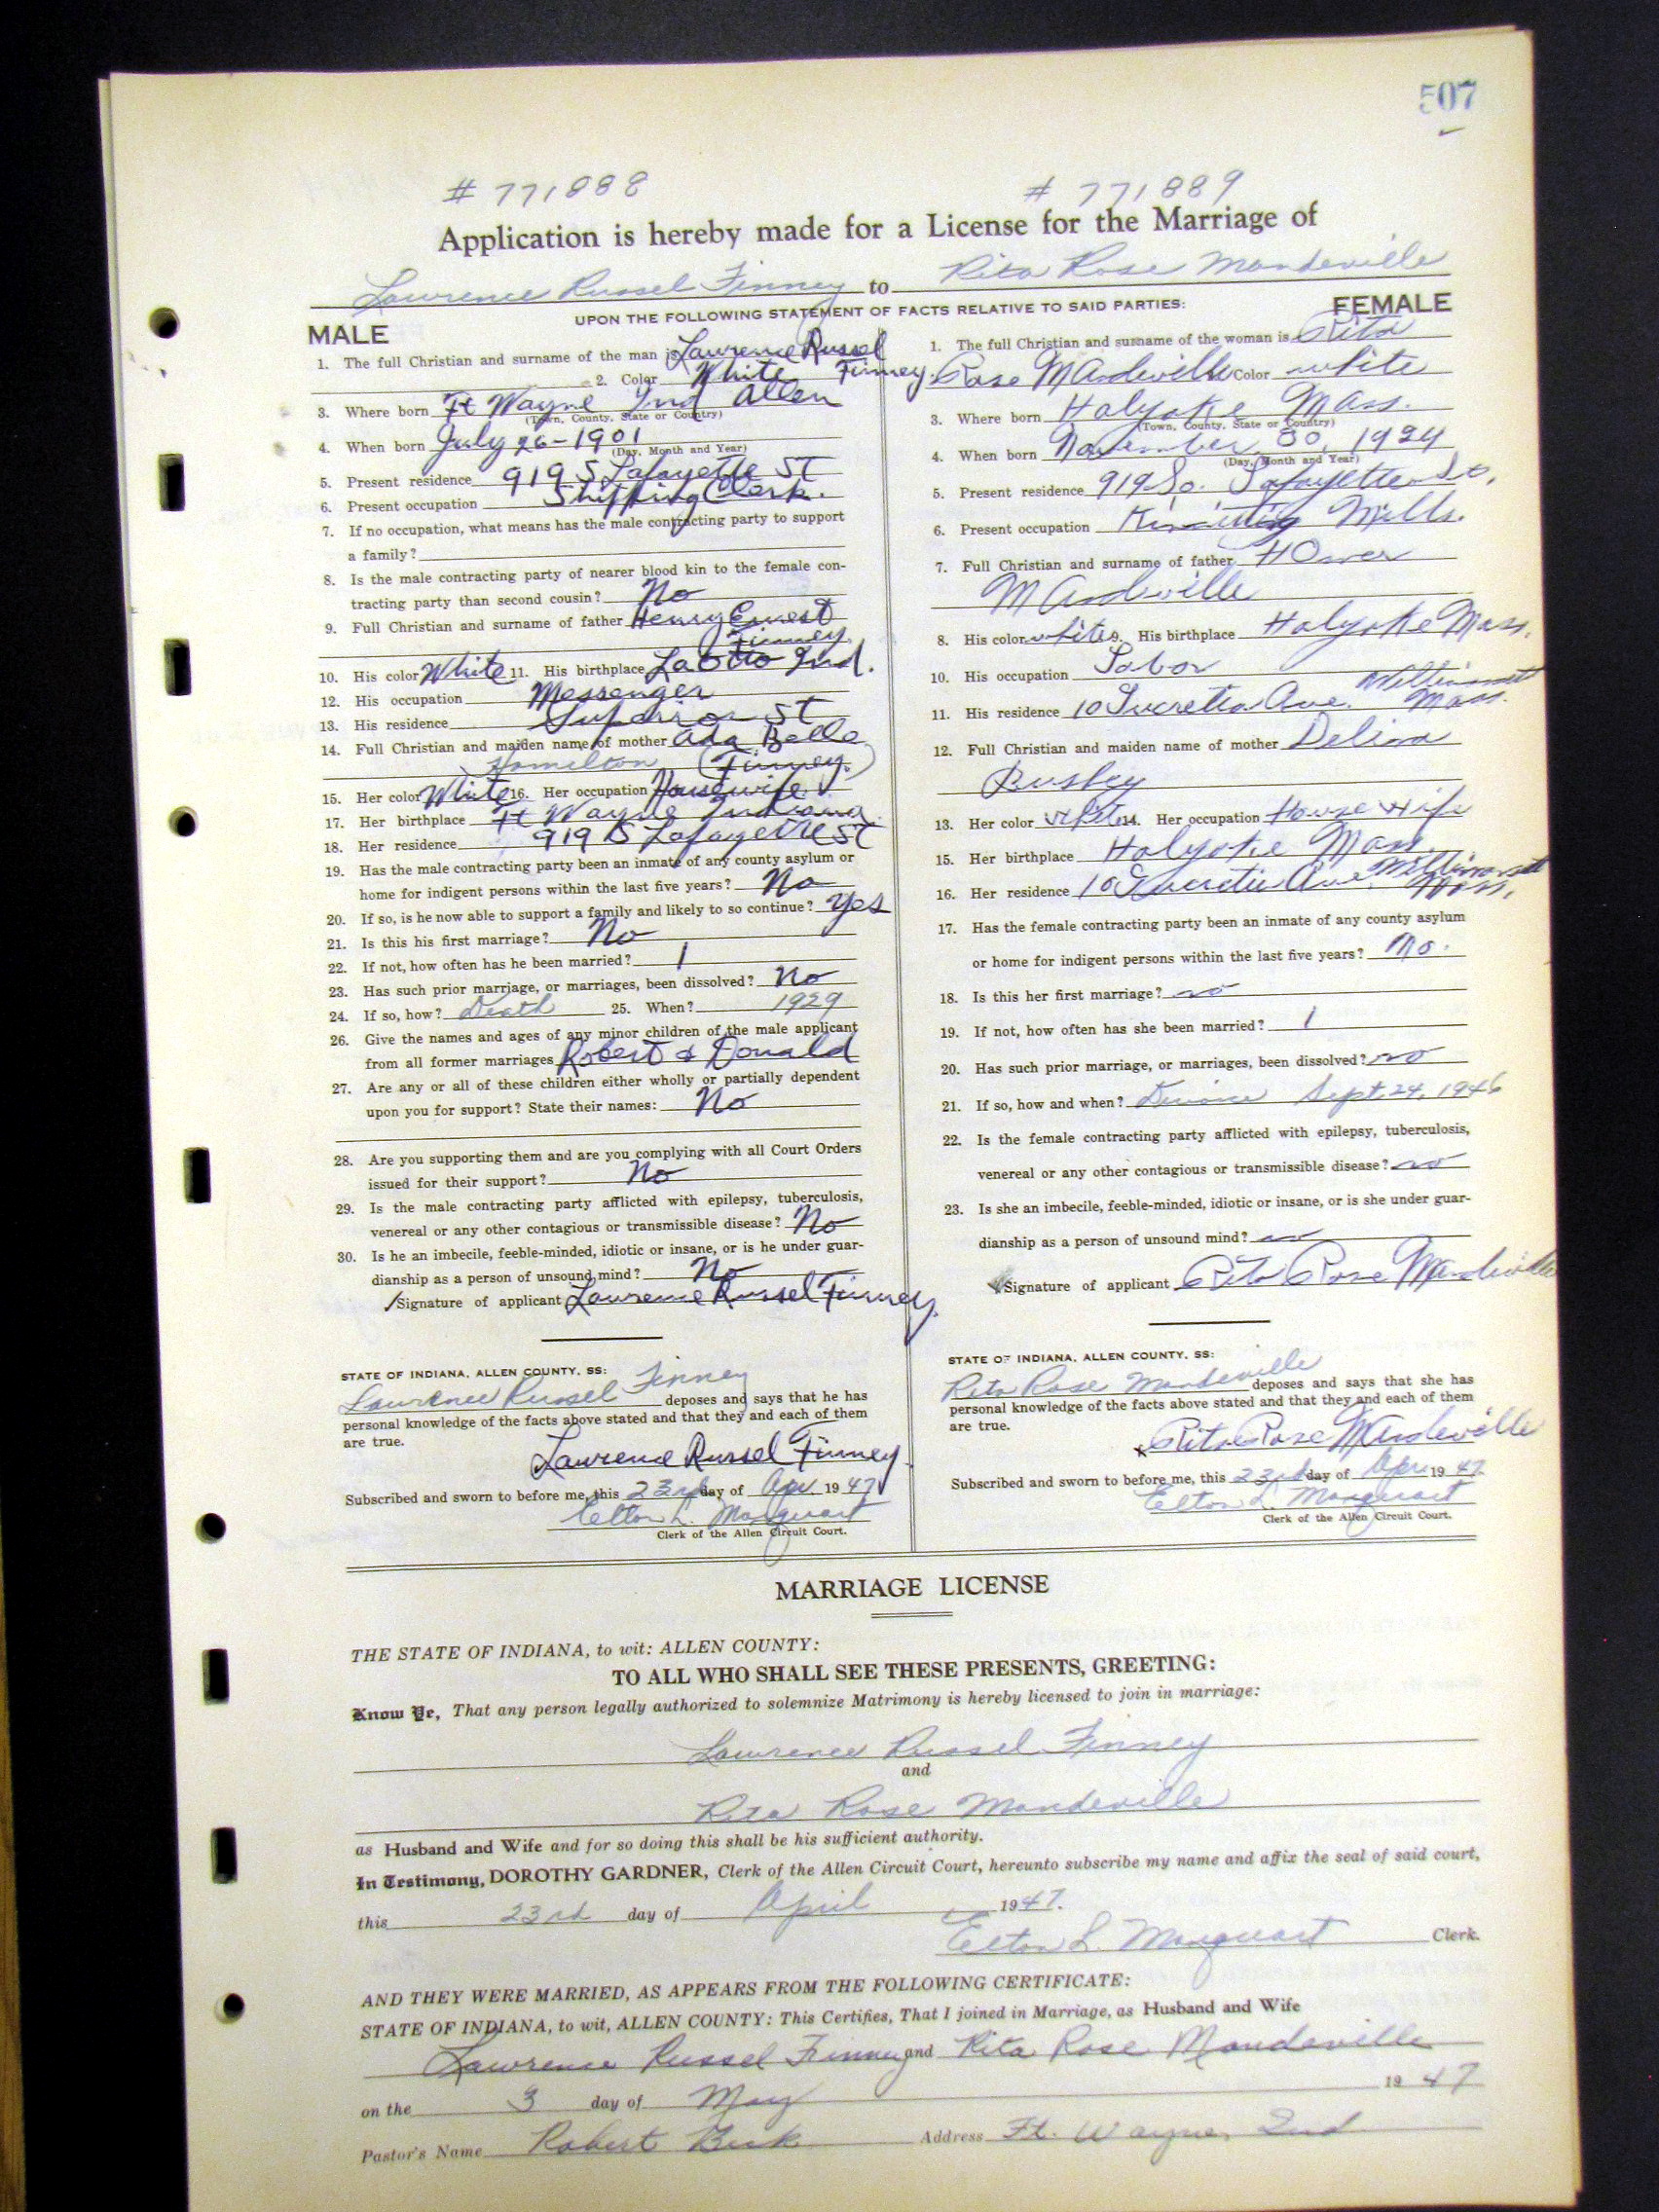 507
# 771888 # 771889
Application is hereby made for a License for the Marriage of
Lawrence Russel Finney to Rita Rose Mandeville
UPON THE FOLLOWING STATEMENT OF FACTS RELATIVE TO SAID PARTIES:
MALE
1. The full Christian and surname of the man is Lawrence Russel
Finney. 2. Color White
3. Where born Ft Wayne Ind Allen
(Town, County, State or Country)
4. When born July 26-1901
(Day, Month and Year)
5. Present residence 919 S Lafayette ST
6. Present occupation Shipping Clerk.
7. If no occupation, what means has the male contracting party to support
a family?
8. Is the male contracting party of nearer blood kin to the female con-
tracting party than second cousin? No
9. Full Christian and surname of father Henry Ernest
Finney
10. His color White 11. His birthplace LaOtto Ind.
12. His occupation Messenger
13. His residence Superior ST
14. Full Christian and maiden name of mother Ada Belle
Hamilton (Finney.)
15. Her color White 16. Her occupation Housewife
17. Her birthplace Ft Wayne Indiana
18. Her residence 919 S Lafayette ST
19. Has the male contracting party been an inmate of any county asylum or
home for indigent persons within the last five years? No
20. If so, is he now able to support a family and likely to so continue? Yes
21. Is this his first marriage? No
22. If not, how often has he been married? 1
23. Has such prior marriage, or marriages, been dissolved? No
24. If so, how? Death 25. When? 1929
26. Give the names and ages of any minor children of the male applicant
from all former marriages Robert & Donald
27. Are any or all of these children either wholly or partially dependent
upon you for support? State their names: No
28. Are you supporting them and are you complying with all Court Orders
issued for their support? No
29. Is the male contracting party afflicted with epilepsy, tuberculosis,
venereal or any other contagious or transmissible disease? No
30. Is he an imbecile, feeble-minded, idiotic or insane, or is he under guar-
dianship as a person of unsound mind? No
Signature of applicant Lawrence Russel Finney
STATE OF INDIANA, ALLEN COUNTY, SS:
Lawrence Russel Finney deposes and says that he has
personal knowledge of the facts above stated and that they and each of them
are true.
Lawrence Russel Finney
Subscribed and sworn to before me, this 23rd day of Apr. 1947
Elton L. Marquart
Clerk of the Allen Circuit Court.
FEMALE
1. The full Christian and surname of the woman is Rita
Rose Mandeville Color white
3. Where born Holyoke Mass.
(Town, County, State or Country)
4. When born November 30, 1924
(Day, Month and Year)
5. Present residence 919 So. Lafayette St.
6. Present occupation Knitting Mills.
7. Full Christian and surname of father
Mandeville
8. His color white 9. His birthplace Holyoke Mass.
10. His occupation Labor
11. His residence 10 Lucretia Ave. Willimansett Mass.
12. Full Christian and maiden name of mother Delina
13. Her color white 14. Her occupation House wife
15. Her birthplace Holyoke Mass.
16. Her residence 10 Lucretia Ave Willimansett Mass.
17. Has the female contracting party been an inmate of any county asylum
or home for indigent persons within the last five years? No.
18. Is this her first marriage? no
19. If not, how often has she been married? 1
20. Has such prior marriage, or marriages, been dissolved? no
21. If so, how and when? Divorce Sept. 24, 1946
22. Is the female contracting party afflicted with epilepsy, tuberculosis,
venereal or any other contagious or transmissible disease? no
23. Is she an imbecile, feeble-minded, idiotic or insane, or is she under guar-
dianship as a person of unsound mind? no
Signature of applicant Rita Rose Mandeville
STATE OF INDIANA, ALLEN COUNTY, SS:
Rita Rose Mandeville deposes and says that she has
personal knowledge of the facts above stated and that they and each of them
are true.
Rita Rose Mandeville
Subscribed and sworn to before me, this 23rd day of Apr. 1947
Elton L. Marquart
Clerk of the Allen Circuit Court.
MARRIAGE LICENSE
THE STATE OF INDIANA, to wit: ALLEN COUNTY:
TO ALL WHO SHALL SEE THESE PRESENTS, GREETING:
Know Ye, That any person legally authorized to solemnize Matrimony is hereby licensed to join in marriage:
Lawrence Russel Finney
and
Rita Rose Mandeville
as Husband and Wife and for so doing this shall be his sufficient authority.
In Testimony, DOROTHY GARDNER, Clerk of the Allen Circuit Court, hereunto subscribe my name and affix the seal of said court,
this 23rd day of April 1947.
Elton L. Marquart Clerk.
AND THEY WERE MARRIED, AS APPEARS FROM THE FOLLOWING CERTIFICATE:
STATE OF INDIANA, to wit, ALLEN COUNTY: This Certifies, That I joined in Marriage, as Husband and Wife
Lawrence Russel Finney and Rita Rose Mandeville
on the 3 day of May 1947
Pastor's Name Robert Address Ft. Wayne, Ind